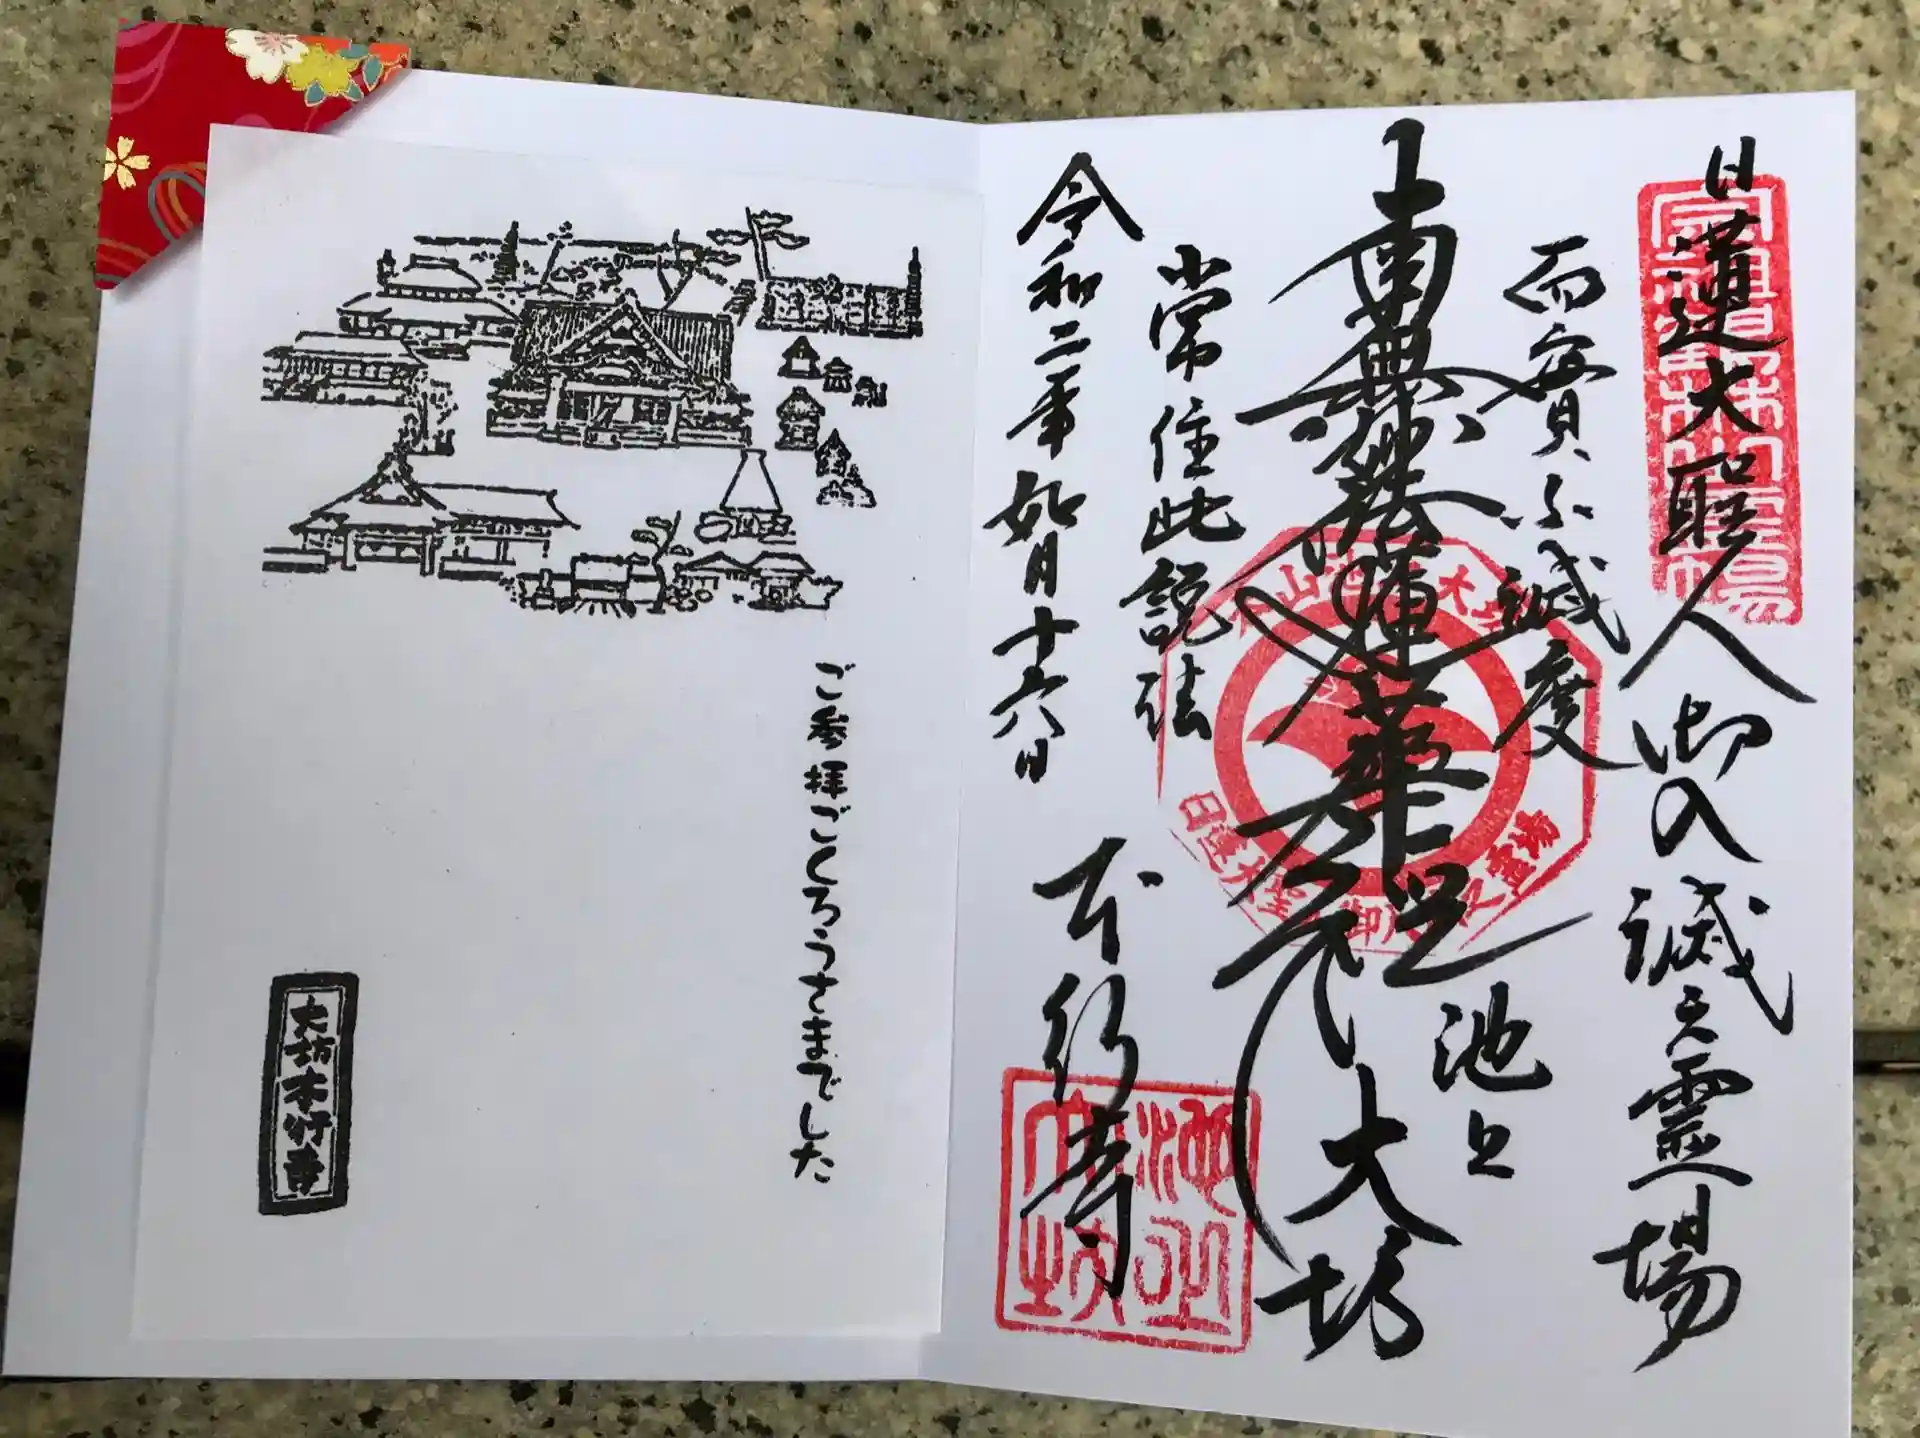 日蓮大聖人御入滅之霊場
而実不滅度
南無妙法蓮華経
池上
大坊
常住此説法
令和二年如月十六日
本行寺
ご参拝ごくろうさまでした
大坊本行寺